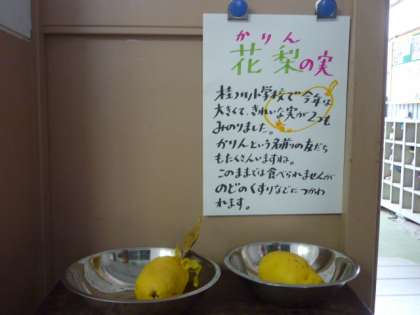 かりん
花梨の実
桂川小学校で今年は
大きくて、きれいな実が2つも
みのりました。
かりんという名前の友だち
もたくさんいますね。
このままでは食べられませんが
のどのくすりなどにつかわ
れます。